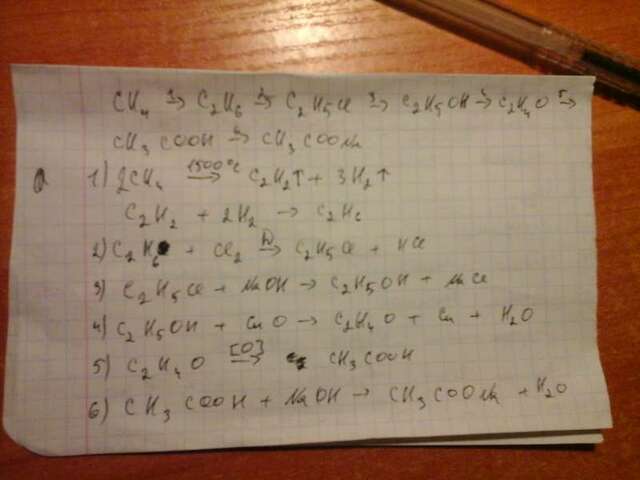 CH4 1→ C2H6 2→ C2H5Cl 3→ C2H5OH 4→ C2H4O 5→
CH3COOH 6→ CH3COONa
1) 2CH4 1500°C→ C2H2↑ + 3H2↑
C2H2 + 2H2 → C2H6
2) C2H6 + Cl2 hν→ C2H5Cl + HCl
3) C2H5Cl + NaOH → C2H5OH + NaCl
4) C2H5OH + CuO → C2H4O + Cu + H2O
5) C2H4O [O]→ CH3COOH
6) CH3COOH + NaOH → CH3COONa + H2O